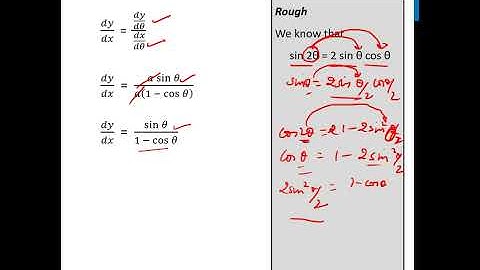 dy/dx = (dy/dθ)/(dx/dθ)
dy/dx = a sin θ / a(1 − cos θ)
dy/dx = sin θ / 1 − cos θ
Rough
We know that
sin 2θ = 2 sin θ cos θ
sinθ = 2sin θ/2 cosθ/2
cos2θ = 1 − 2sin²θ
cosθ = 1 − 2sin²θ/2
2sin²θ/2 = 1−cosθ